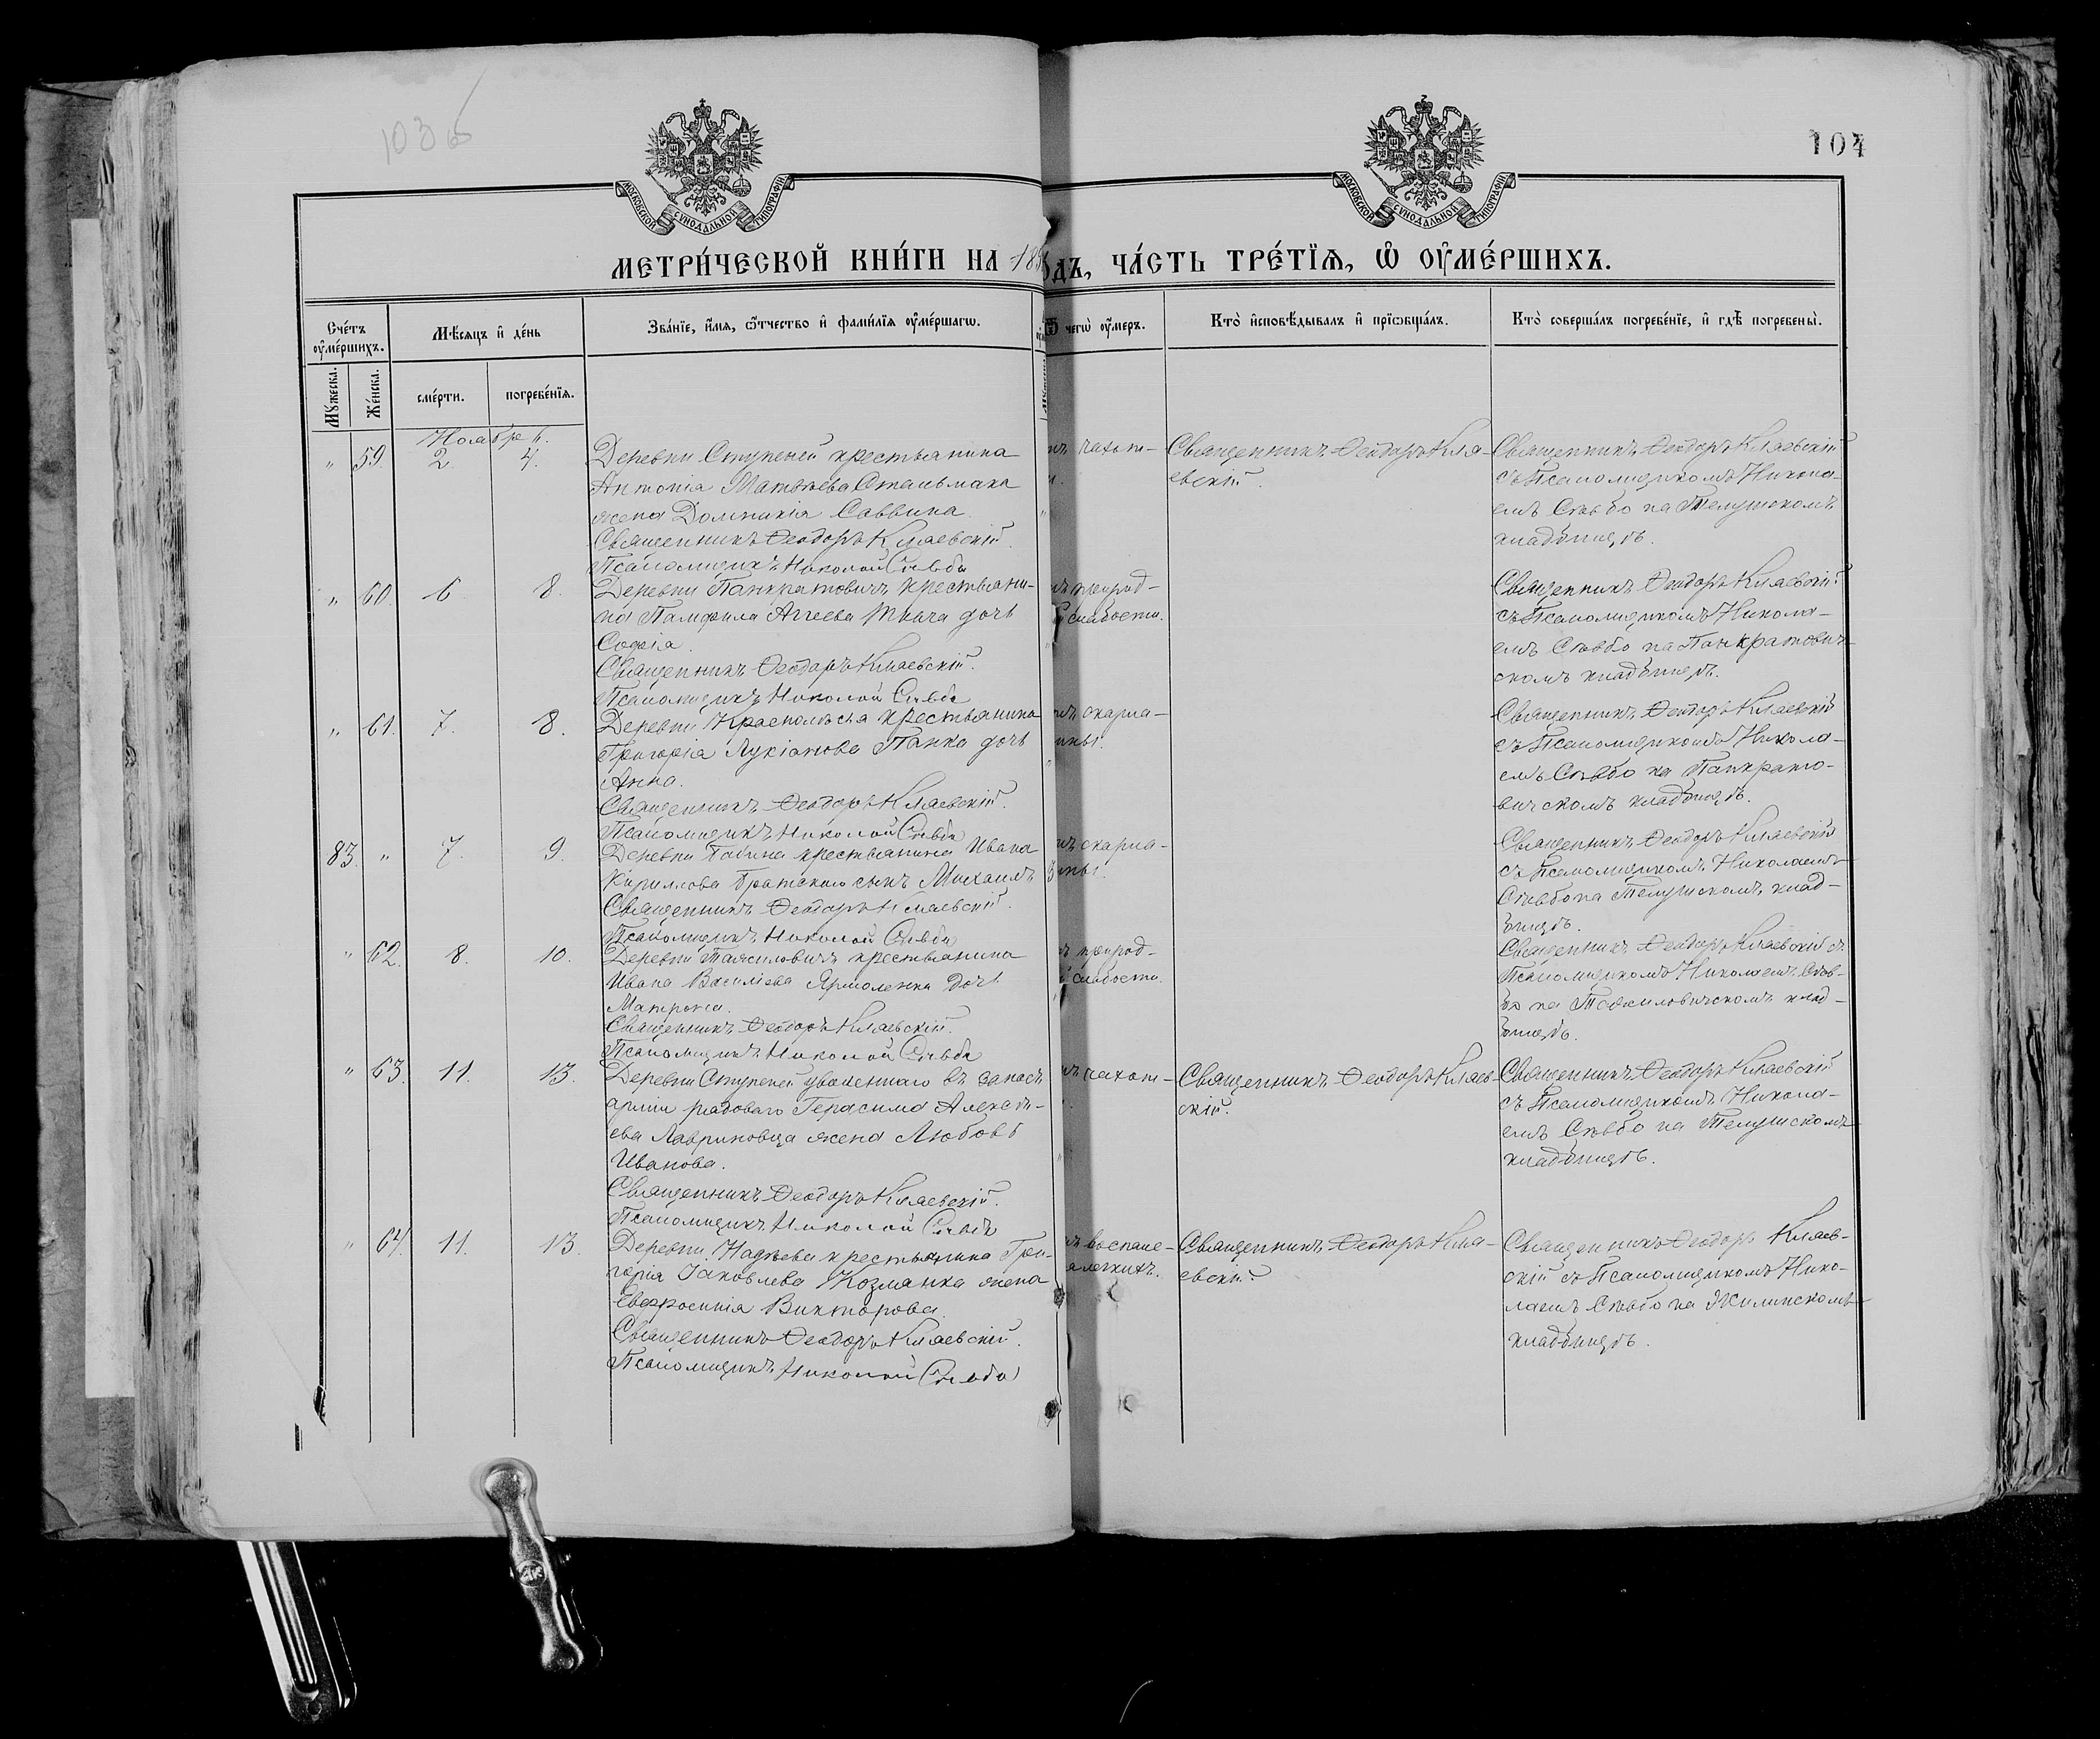 103 об
104
МОСКОВСКОЙ СУНОДАЛЬНОЙ ТИПОГРАФІИ
МОСКОВСКОЙ СУНОДАЛЬНОЙ ТИПОГРАФІИ
МЕТРИ́ЧЕСКОЙ КНИ́ГИ НА 18
ОДЪ, ЧА́СТЬ ТРЕ́ТЇѦ, Ѡ҆ ОУ҆МЕ́РШИХЪ.
Сче́тъ оу҆ме́ршихъ.
Мꙋ́жеска.
Же́нска.
Мѣ́сѧцъ и҆ де́нь
сме́рти.
погребе́нїѧ.
Зва́нїе, и҆́мѧ, ѻ҆́тчество и҆ фами́лїѧ оу҆ме́ршагѡ.
Ѿ чегѡ̀ оу҆́меръ.
Кто̀ и҆сповѣ́дывалъ и҆ прїѡбща́лъ.
Кто̀ соверша́лъ погребе́нїе, и҆ гдѣ̀ погребены̀.
Ноября
" 59. 2. 4.
Деревни Ступеней крестьянина
Антонія Матѳѣева Стельмаха
жена Домникія Саввина
Священникъ Ѳеодоръ Кляевскій.
Псаломщикъ Николай Сѣвба
нъ чахот-
и.
Священникъ Ѳеодоръ Кля-
евскій.
Священникъ Ѳеодоръ Кляевскій
съ Псаломщикомъ Никола-
емъ Сѣвбо на Телушскомъ
кладбищѣ.
" 60. 6. 8.
Деревни Панкратовичъ крестьяни-
на Памфила Аггеева Ткача дочь
Софія.
Священникъ Ѳеодоръ Кляевскій.
Псаломщикъ Николай Сѣвба
природ-
слабости.
Священникъ Ѳеодоръ Кляевскій
съ Псаломщикомъ Никола-
емъ Сѣвбо на Панкратович-
скомъ кладбищѣ.
" 61. 7. 8.
Деревни Краснолѣсья крестьянина
Григорія Лукіанова Панка дочь
Анна.
Священникъ Ѳеодоръ Кляевскій.
Псаломщикъ Николай Сѣвба
скарла-
ины.
Священникъ Ѳеодоръ Кляевскій
съ Псаломщикомъ Никола-
емъ Сѣвбо на Панкрато-
вичскомъ кладбищѣ.
83. " 7. 9.
Деревни крестьянина Ивана
Кириллова Братского сынъ Михаилъ
Священникъ Ѳеодоръ Кляевскій.
Псаломщикъ Николай Сѣвба
скарла-
ины.
Священникъ Ѳеодоръ Кляевскій
съ Псаломщикомъ Николаемъ
Сѣвбо на Телушскомъ клад-
бищѣ.
" 62. 8. 10.
Деревни крестьянина
Ивана Василіева Ярмоленка дочь
Матрона.
Священникъ Ѳеодоръ Кляевскій.
Псаломщикъ Николай Сѣвба
природ-
слабости.
Священникъ Ѳеодоръ Кляевскій съ
Псаломщикомъ Николаемъ Сѣв-
бо на клад-
бищѣ.
" 63. 11. 13.
Деревни Ступеней уволеннаго въ запасъ
арміи рядоваго Герасима Алексѣ-
ева Лавриновца жена Любовь
Иванова.
Священникъ Ѳеодоръ Кляевскій.
Псаломщикъ Николай Сѣвба
чахот-
Священникъ Ѳеодоръ Кляев-
скій.
Священникъ Ѳеодоръ Кляевскій
съ Псаломщикомъ Никола-
емъ Сѣвбо на Телушскомъ
кладбищѣ.
" 64. 11. 13.
Деревни Надѣева крестьянина Гри-
горія Іаковлева Козлянка жена
Евфросинія Викторова.
Священникъ Ѳеодоръ Кляевскій.
Псаломщикъ Николай Сѣвба
воспале-
легкихъ.
Священникъ Ѳеодоръ Кля-
евскій.
Священникъ Ѳеодоръ Кляев-
скій съ Псаломщикомъ Нико-
лаемъ Сѣвбо на Жилинскомъ
кладбищѣ.